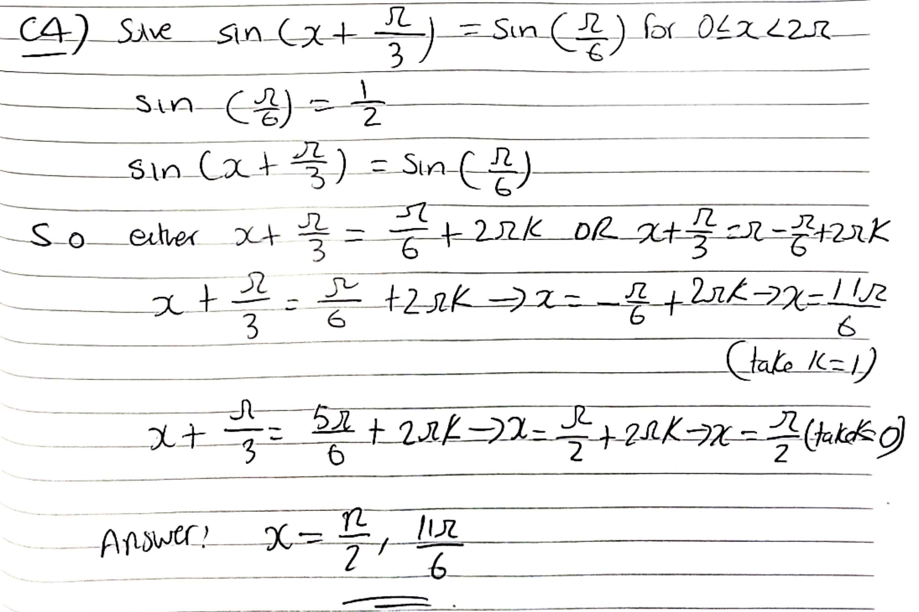 C4) Solve sin(x + π/3) = sin(π/6) for 0≤x<2π
sin (π/6) = 1/2
sin (x + π/3) = sin (π/6)
So either x + π/3 = π/6 + 2πK OR x + π/3 = π - π/6 + 2πK
x + π/3 = π/6 + 2πK → x = -π/6 + 2πK → x = 11π/6
(take K=1)
x + π/3 = 5π/6 + 2πK → x = π/2 + 2πK → x = π/2 (take K=0)
Answer! x = π/2, 11π/6